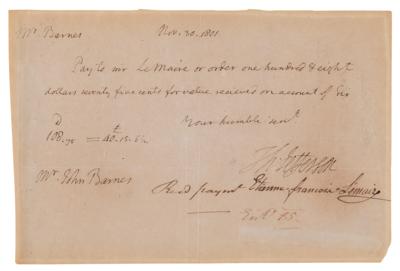 Mr. Barnes Nov. 30. 1801
Pay to mr LeMaire or order one hundred & eight
dollars seventy five cents for value recieved on account of Sir
D
108.75 = 40
Your humble servt.
Th: Jefferson
Mr. John Barnes
Recd payment Etienne françois Lemaire